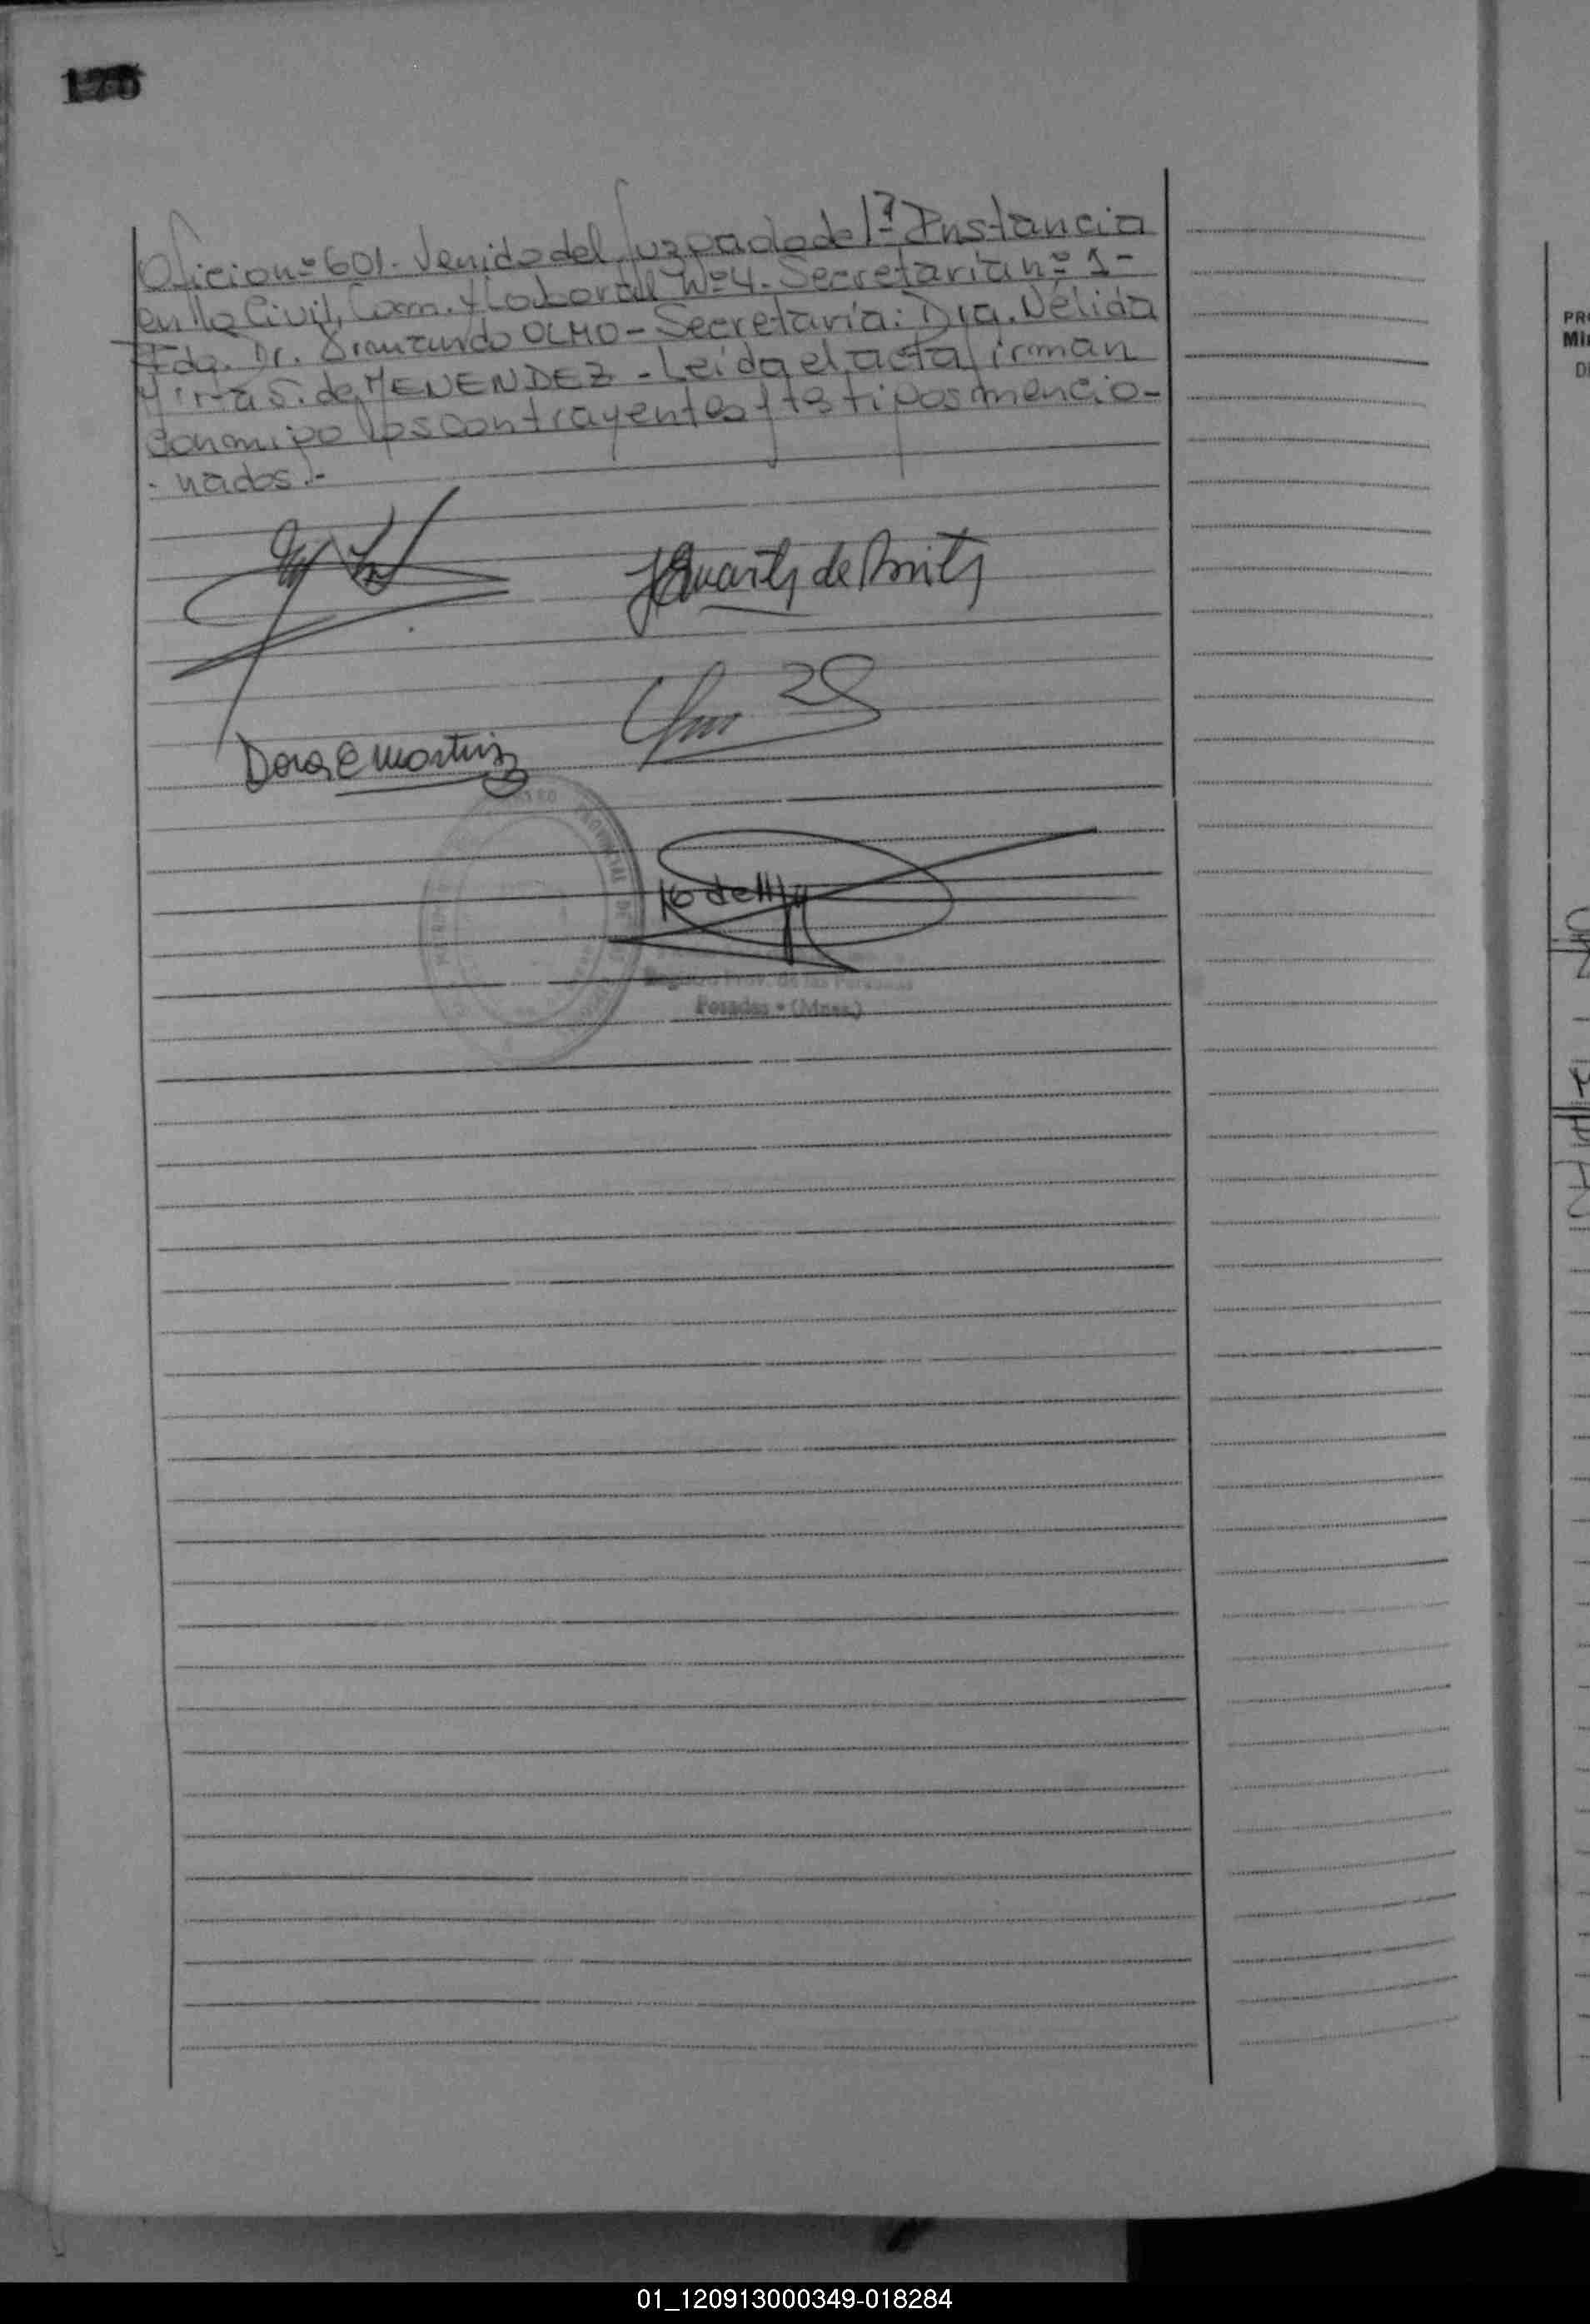 Oficio nº 601. Venido del Juzgado de 1ª Instancia
en lo Civil, Com. y Laboral Nº 4. Secretaría nº 1-
Fdo. Dr. OLMO - Secretaria: Dra. Nélida
Mirta S. de MENENDEZ - Leída el acta firman
conmigo los contrayentes y testigos mencio-
nados.-
de
Dora E Martinez
Registro Prov. de las Personas
Posadas - (Mnes.)
PRO
MI
D
01_120913000349-018284